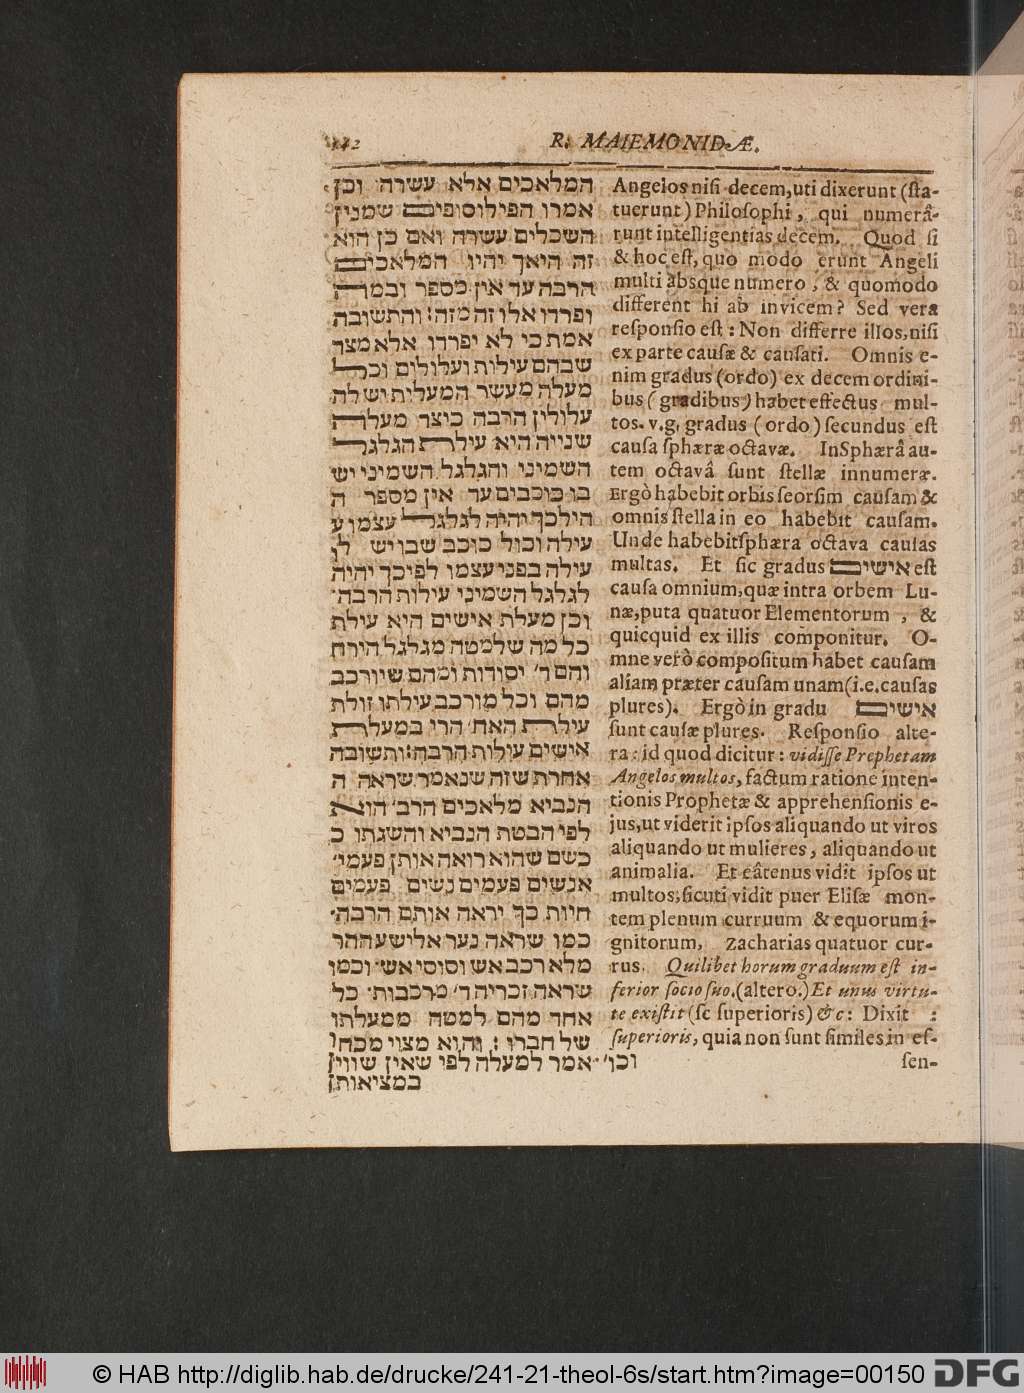 142
R. MAIEMONIDÆ.
המלאכים אלא עשרה וכן
אמרו הפילוסופים שמנין
השכלים עשרה ואם כן הוא
זה היאך יהיו המלאכים
הרבה עד אין מספר ובמה
ופרדו אלו זה מזה: והתשובה
אמת כי לא יפרדו אלא מצד
שבהם עילות ועלולים וכל
מעלה מעשר המעלות יש לה
עלולין הרבה כיצד מעלה
שנייה היא עילת הגלגל
השמיני והגלגל השמיני יש
בו כוכבים עד אין מספר ה
הילכך יהיה לגלגל עצמו ע
עילה וכול כוכב שבו יש לו
עילה בפני עצמו לפיכך יהיה
לגלגל השמיני עילות הרבה·
וכן מעלת אישים היא עילת
כל מה שלמטה מגלגל הירח
והם ד' יסודות ומהם שיורכב
מהם וכל מורכב עילתו זולת
עילת האח' הרי במעלת
אישים עילות הרבה: ותשובה
אחרת שזה שנאמר שראה ה
הנביא מלאכים הרב' הוא
לפי הבטת הנביא והשגתו כ
כשם שהוא רואה אותן פעמי'
אנשים פעמים נשים פעמים
חיות כך יראה אותם הרבה·
כמו שראה נער אלישע ההר
מלא רכב אש וסוסי אש· וכמו
שראה זכריה ד' מרכבות· כל
אחד מהם למטה ממעלתו
של חברו: והוא מצוי מכחו
וכו'· אמר למעלה לפי שאין שווין
במציאותן
Angelos nisi decem, uti dixerunt (sta-
tuerunt) Philosophi, qui numerâ-
runt intelligentias decem. Quod si
& hoc est, quo modo erunt Angeli
multi absque numero, & quomodo
different hi ab invicem? Sed vera
responsio est: Non differre illos, nisi
ex parte causæ & causati. Omnis e-
nim gradus (ordo) ex decem ordini-
bus (gradibus) habet effectus mul-
tos. v.g. gradus (ordo) secundus est
causa sphæræ octavæ. In Sphærâ au-
tem octavâ sunt stellæ innumeræ.
Ergò habebit orbis seorsim causam &
omnis stella in eo habebit causam.
Unde habebit sphæra octava causas
multas. Et sic gradus אישים est
causa omnium, quæ intra orbem Lu-
næ, puta quatuor Elementorum, &
quicquid ex illis componitur. O-
mne verò compositum habet causam
aliam præter causam unam (i.e. causas
plures). Ergò in gradu אישים
sunt causæ plures. Responsio alte-
ra: id quod dicitur: vidisse Prephetam
Angelos multos, factum ratione inten-
tionis Prophetæ & apprehensionis e-
jus, ut viderit ipsos aliquando ut viros
aliquando ut mulieres, aliquando ut
animalia. Et eâtenus vidit ipsos ut
multos, sicuti vidit puer Elisæ mon-
tem plenum curruum & equorum i-
gnitorum, Zacharias quatuor cur-
rus. Quilibet horum graduum est in-
ferior socio suo. (altero.) Et unus virtu-
te existit (sc superioris) &c: Dixit:
superioris, quia non sunt similes in es-
sen-
© HAB http://diglib.hab.de/drucke/241-21-theol-6s/start.htm?image=00150
DFG